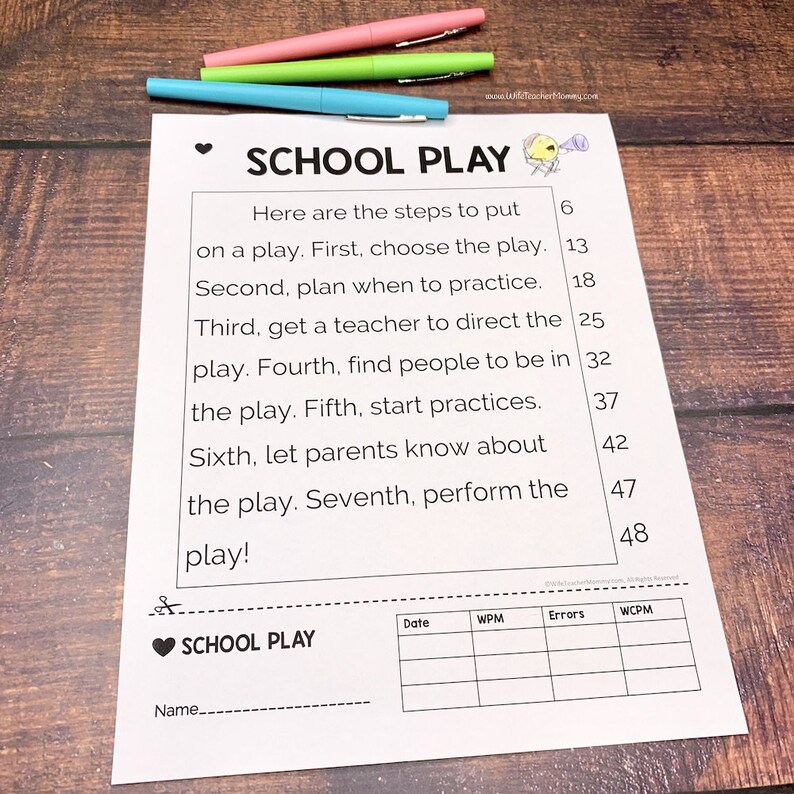 www.WifeTeacherMommy.com
SCHOOL PLAY
Here are the steps to put 6
on a play. First, choose the play. 13
Second, plan when to practice. 18
Third, get a teacher to direct the 25
play. Fourth, find people to be in 32
the play. Fifth, start practices. 37
Sixth, let parents know about 42
the play. Seventh, perform the 47
play! 48
©WifeTeacherMommy.com, All Rights Reserved
SCHOOL PLAY
Name____________________
Date WPM Errors WCPM